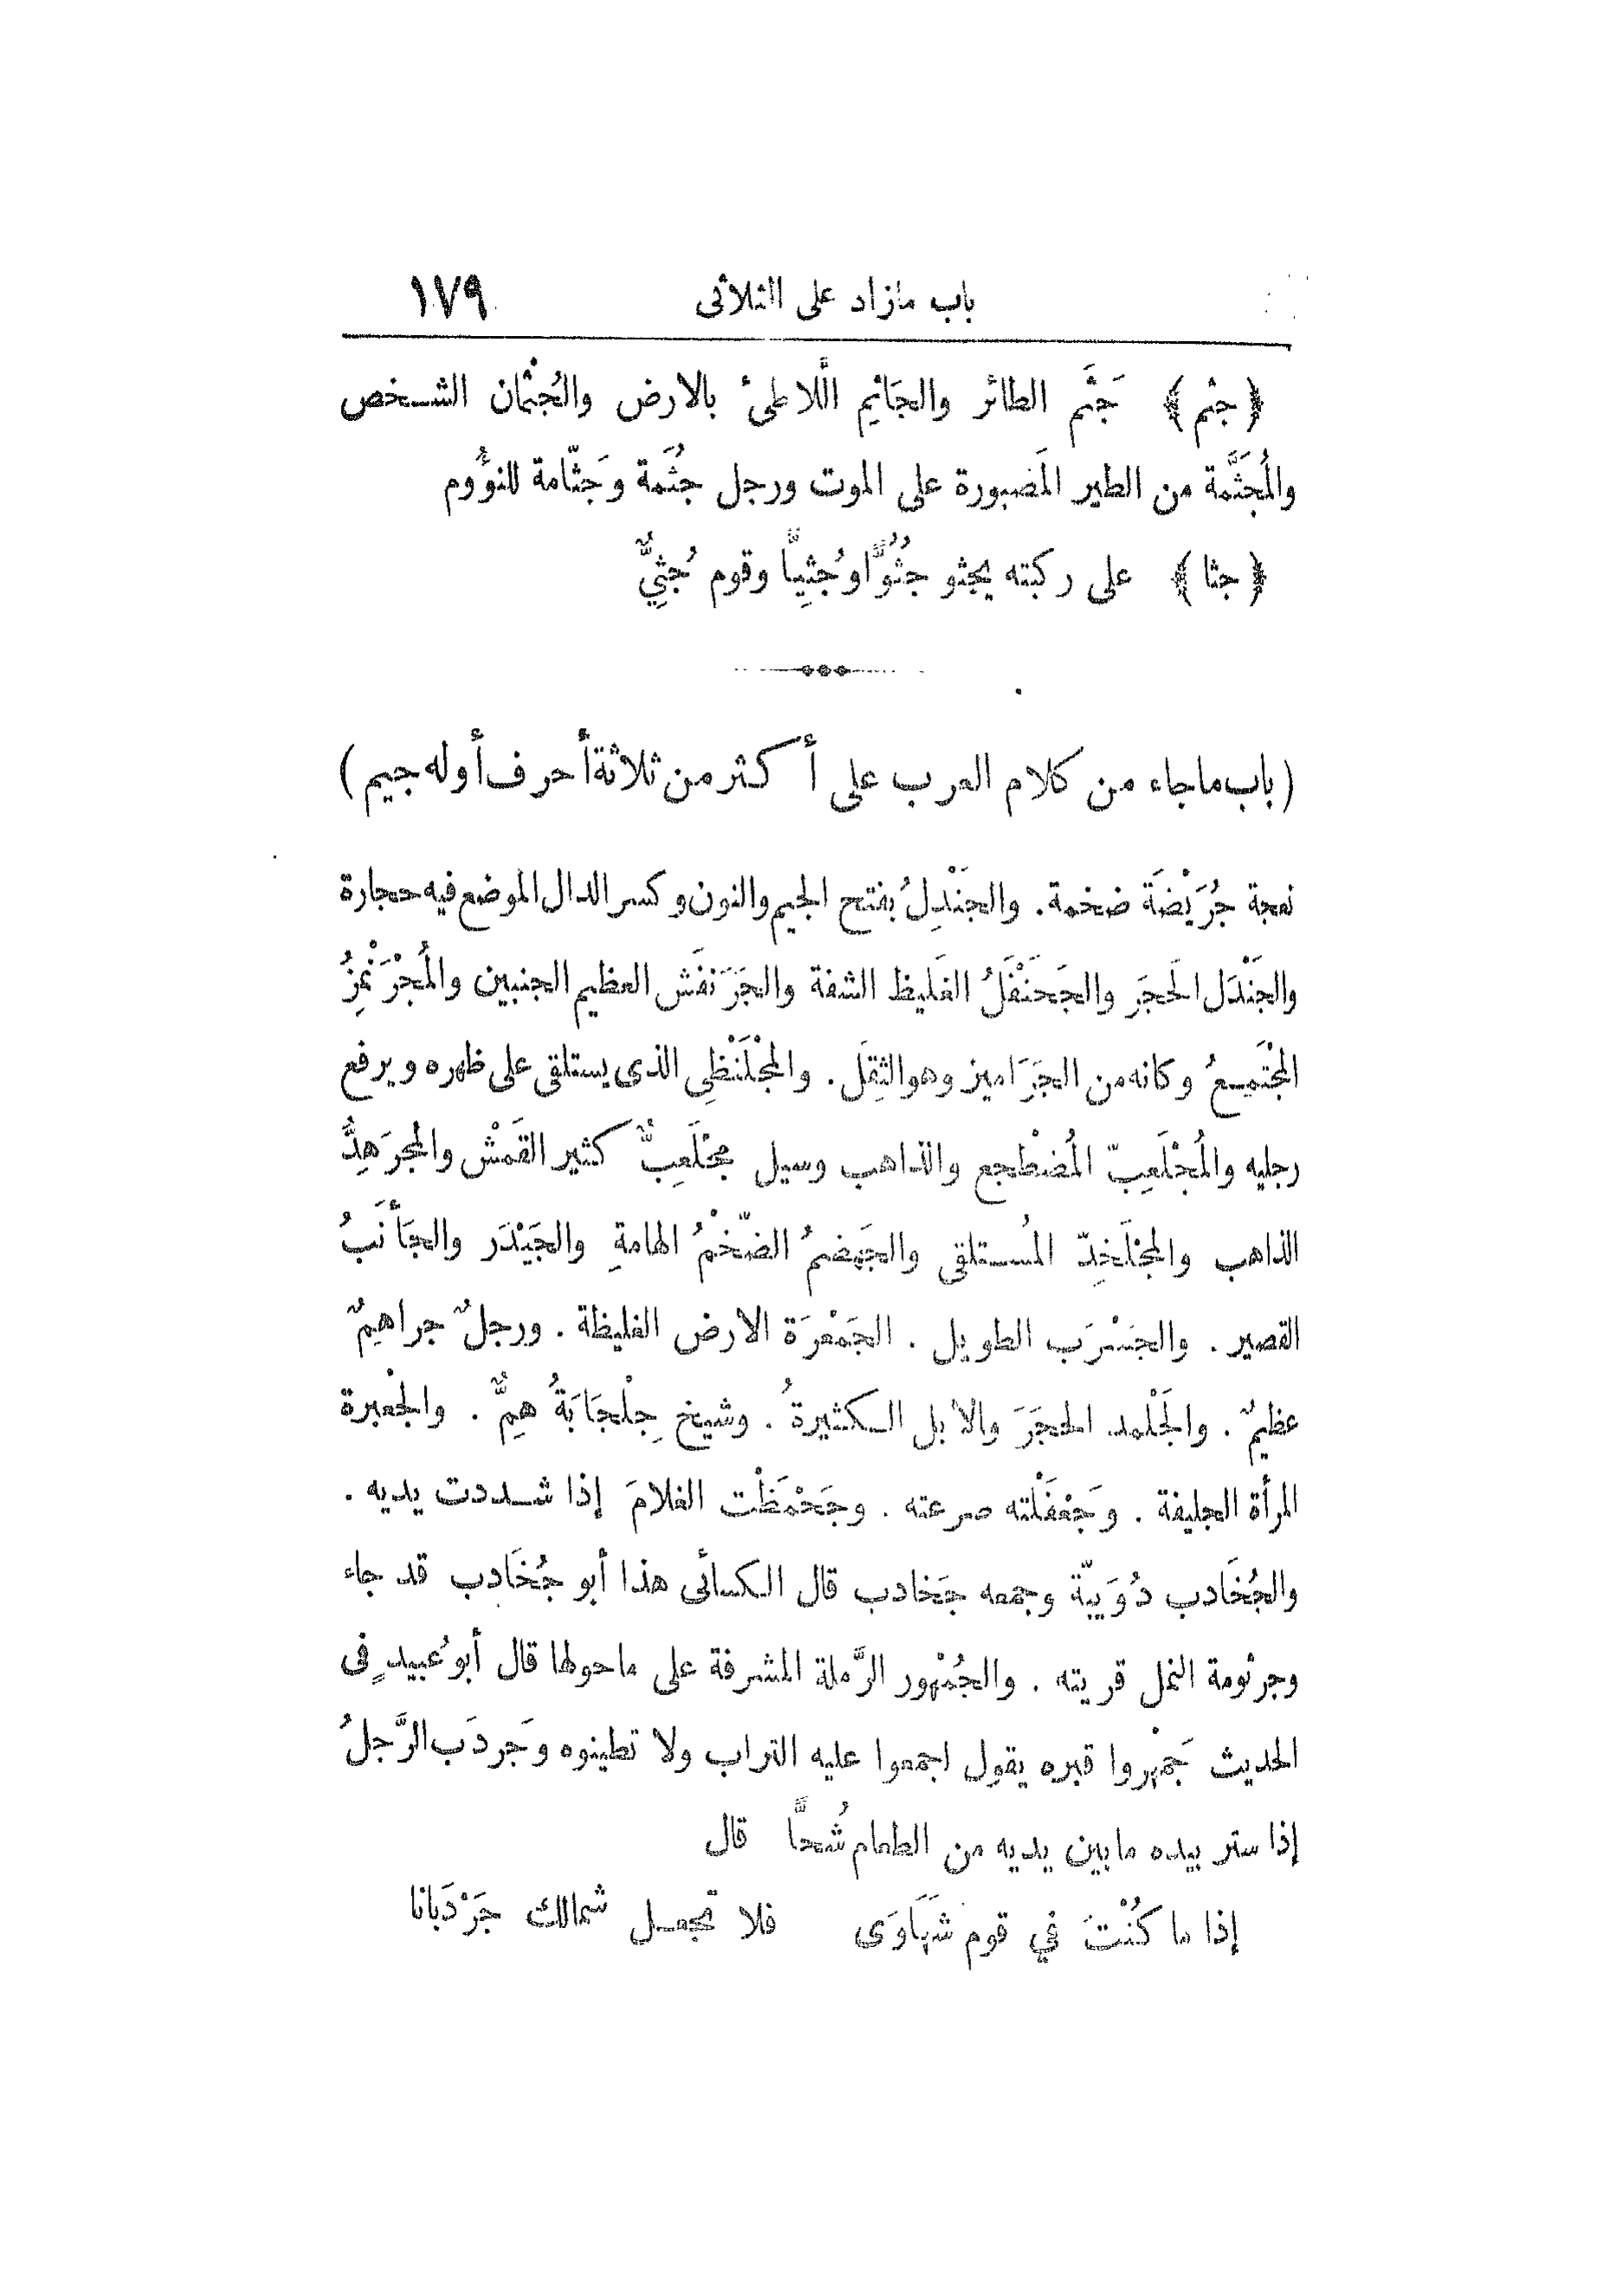 باب مازاد على الثلاثى ١٧٩
﴿جثم﴾ جَثَم الطائر والجَاثِم اللاطئ بالارض والجُثْمان الشخص
والمُجَثَّمة من الطير المَصبورة على الموت ورجل جُثَمة وجَثّامة للنوُّوم
﴿جثا﴾ على ركبته يجثو جُثُوًّا وجُثِيًّا وقوم جُثِيٌّ
(باب ماجاء من كلام العرب على أكثر من ثلاثة أحرف أوله جيم)
نعجة جُرَيْضَة ضخمة. والجَنَدِلُ بفتح الجيم والنون وكسر الدال الموضع فيه حجارة
والجَنْدَل الحَجَر والجَحَنْفَلُ الغَليظ الشفة والجَرَنفَش العظيم الجنبين والمُجْرَنْمِزُ
المجْتَمِعُ وكانه من الجَرَاميز وهو الثِقَل. والمجْلَنْظِي الذى يستلقى على ظهره ويرفع
رجليه والمُجْلَعِبّ المُضْطجع والذاهب وسيل مجْلَعِبٌّ كثير القَمْش والمجرَهِدُّ
الذاهب والمجْلَخِدّ المُستلقى والجَهضمُ الضّخْمُ الهامةِ والجَيْدَر والجَأْنَبُ
القصير. والجَسْرَب الطويل. الجَمْعَرَة الارض الغليظة. ورجلٌ جراهِمٌ
عظيمٌ. والجَلْمد الحجَرَ والابل الكثيرةُ. وشيخ جِلْحَابَةُ هِمٌّ. والجْعبرة
المرأة الجليفة. وجَعْفَلْته صرعته. وجَحْمَظْت الغلامَ إذا شددت يديه.
والجُخَادب دُوَيبّة وجمعه جَخادب قال الكسائى هذا أبو جُخَادب قد جاء
وجرثومة النمل قريته. والجُمْهور الرَّملة المشرفة على ماحولها قال أبو عُبيدٍ فى
الحديث جَمْهِروا قبره يقول اجمعوا عليه التراب ولا تطينوه وجَردَب الرَّجلُ
إذا ستر بيده مابين يديه من الطعام شُحًّا قال
إذا ما كُنْتَ في قوم شَهَاوَى فلا تجعل شمالك جَرْدَبانا